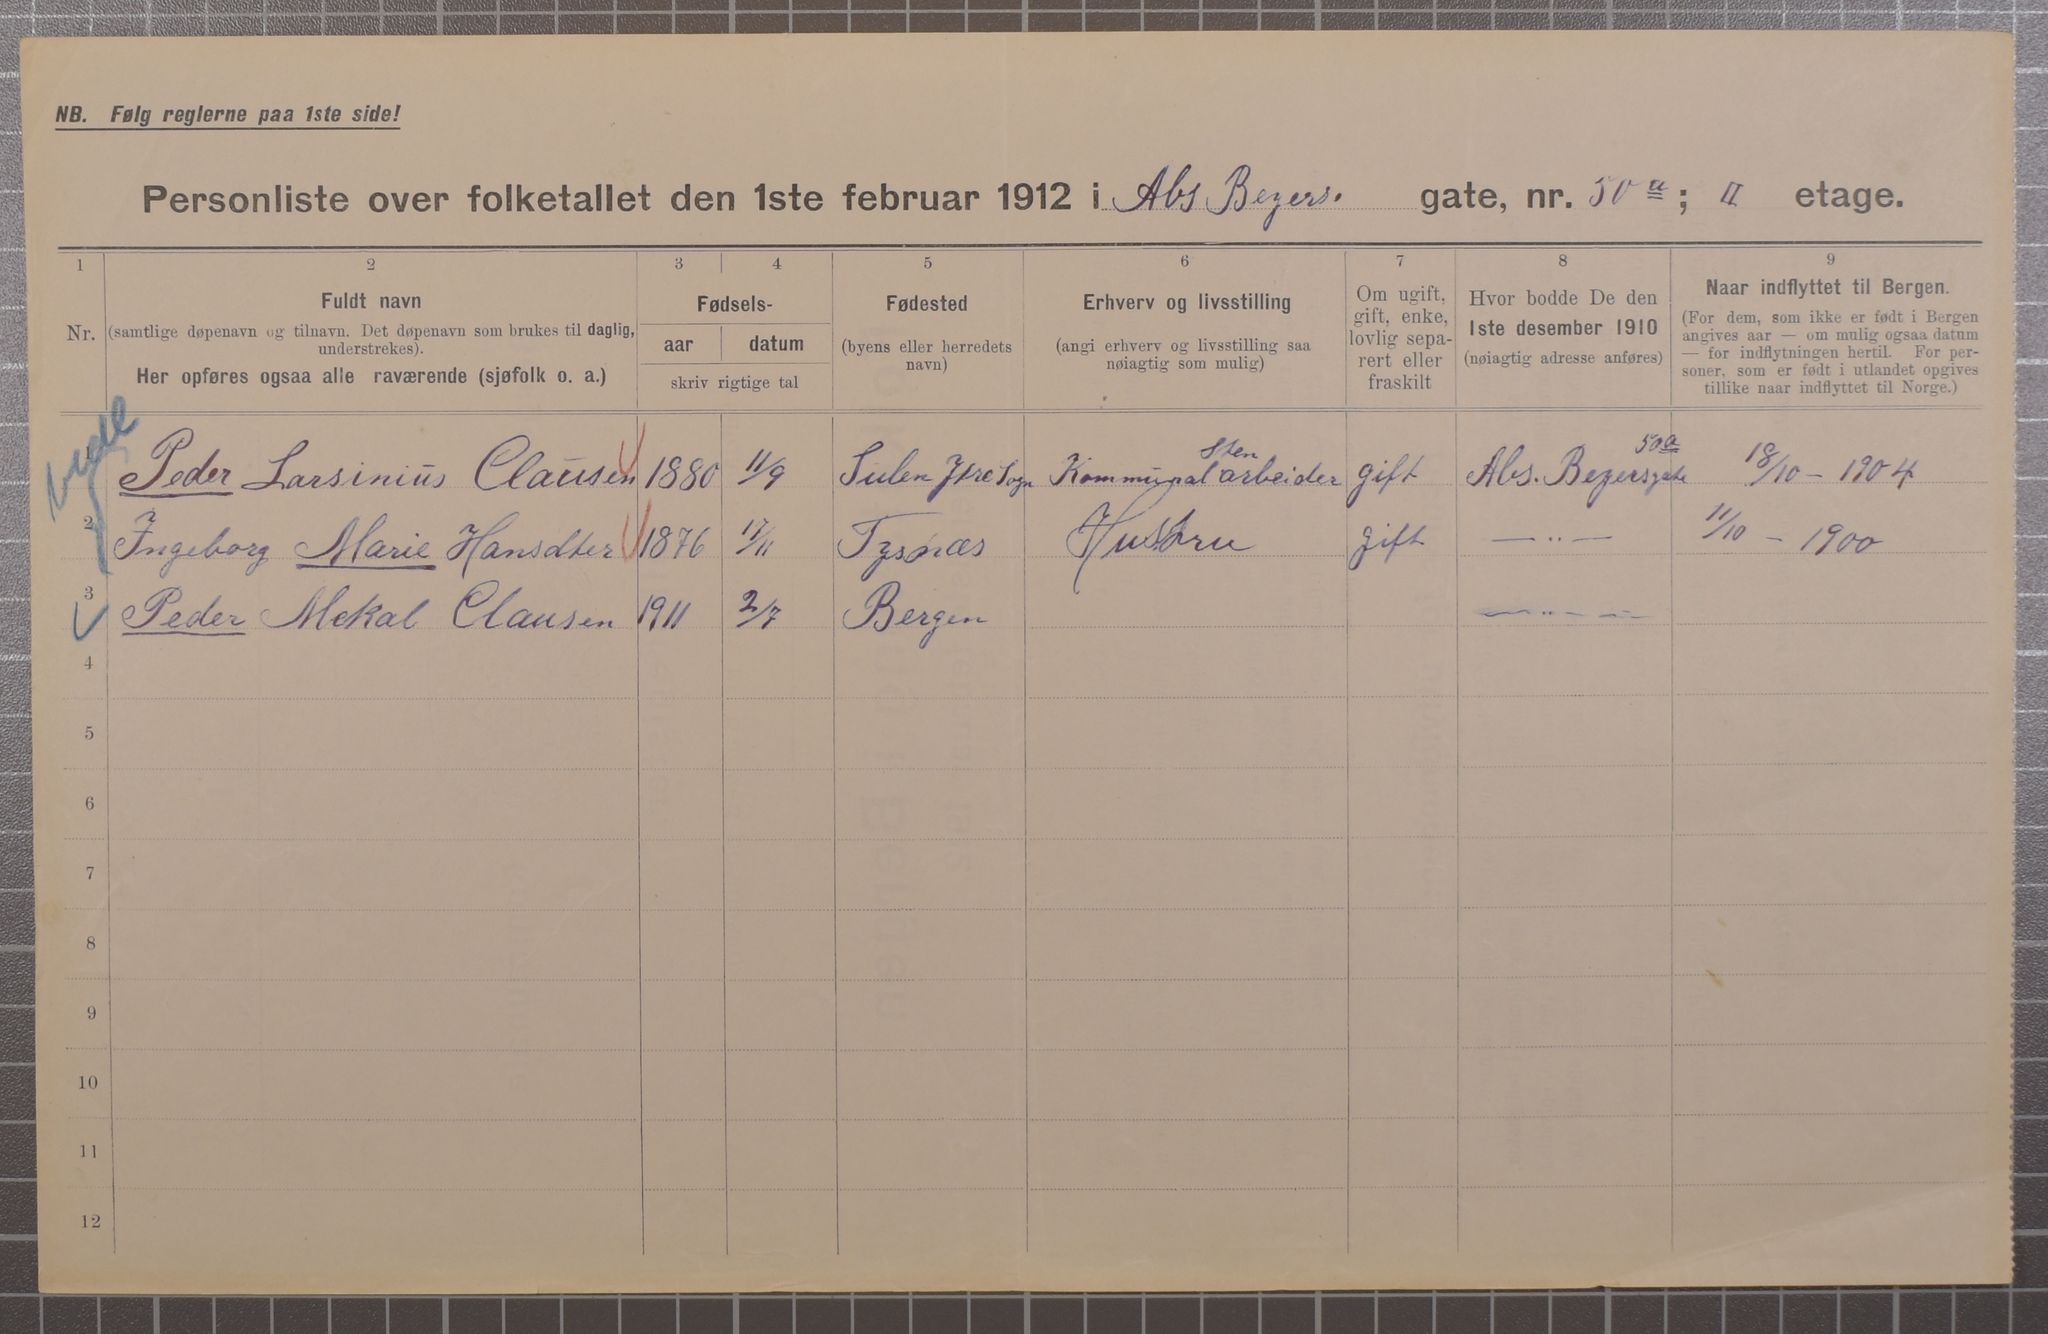 NB. Følg reglerne paa 1ste side!
Personliste over folketallet den 1ste februar 1912 i Abs Beyers. gate, nr. 50 a; II etage.
1 2 3 4 5 6 7 8 9
Nr. Fuldt navn (samtlige døpenavn og tilnavn. Det døpenavn som brukes til daglig, understrekes). Her opføres ogsaa alle raværende (sjøfolk o. a.)
Fødsels- aar datum skriv rigtige tal
Fødested (byens eller herredets navn)
Erhverv og livsstilling (angi erhverv og livsstilling saa nøiagtig som mulig)
Om ugift, gift, enke, lovlig separert eller fraskilt
Hvor bodde De den 1ste desember 1910 (nøiagtig adresse anføres)
Naar indflyttet til Bergen. (For dem, som ikke er født i Bergen angives aar — om mulig ogsaa datum — for indflytningen hertil. For personer, som er født i utlandet opgives tillike naar indflyttet til Norge.)
Peder Larsinius Clausen 1880 11/9 Sulen Ytre Sogn Kommunal Sten arbeider gift Abs. Beyersgate 50a 18/10 - 1904
2 Ingeborg Marie Hansdter 1876 17/11 Tysnæs Hustru gift — " — 11/10 - 1900
3 Peder Mekal Clausen 1911 2/7 Bergen — " — —
4
5
6
7
8
9
10
11
12